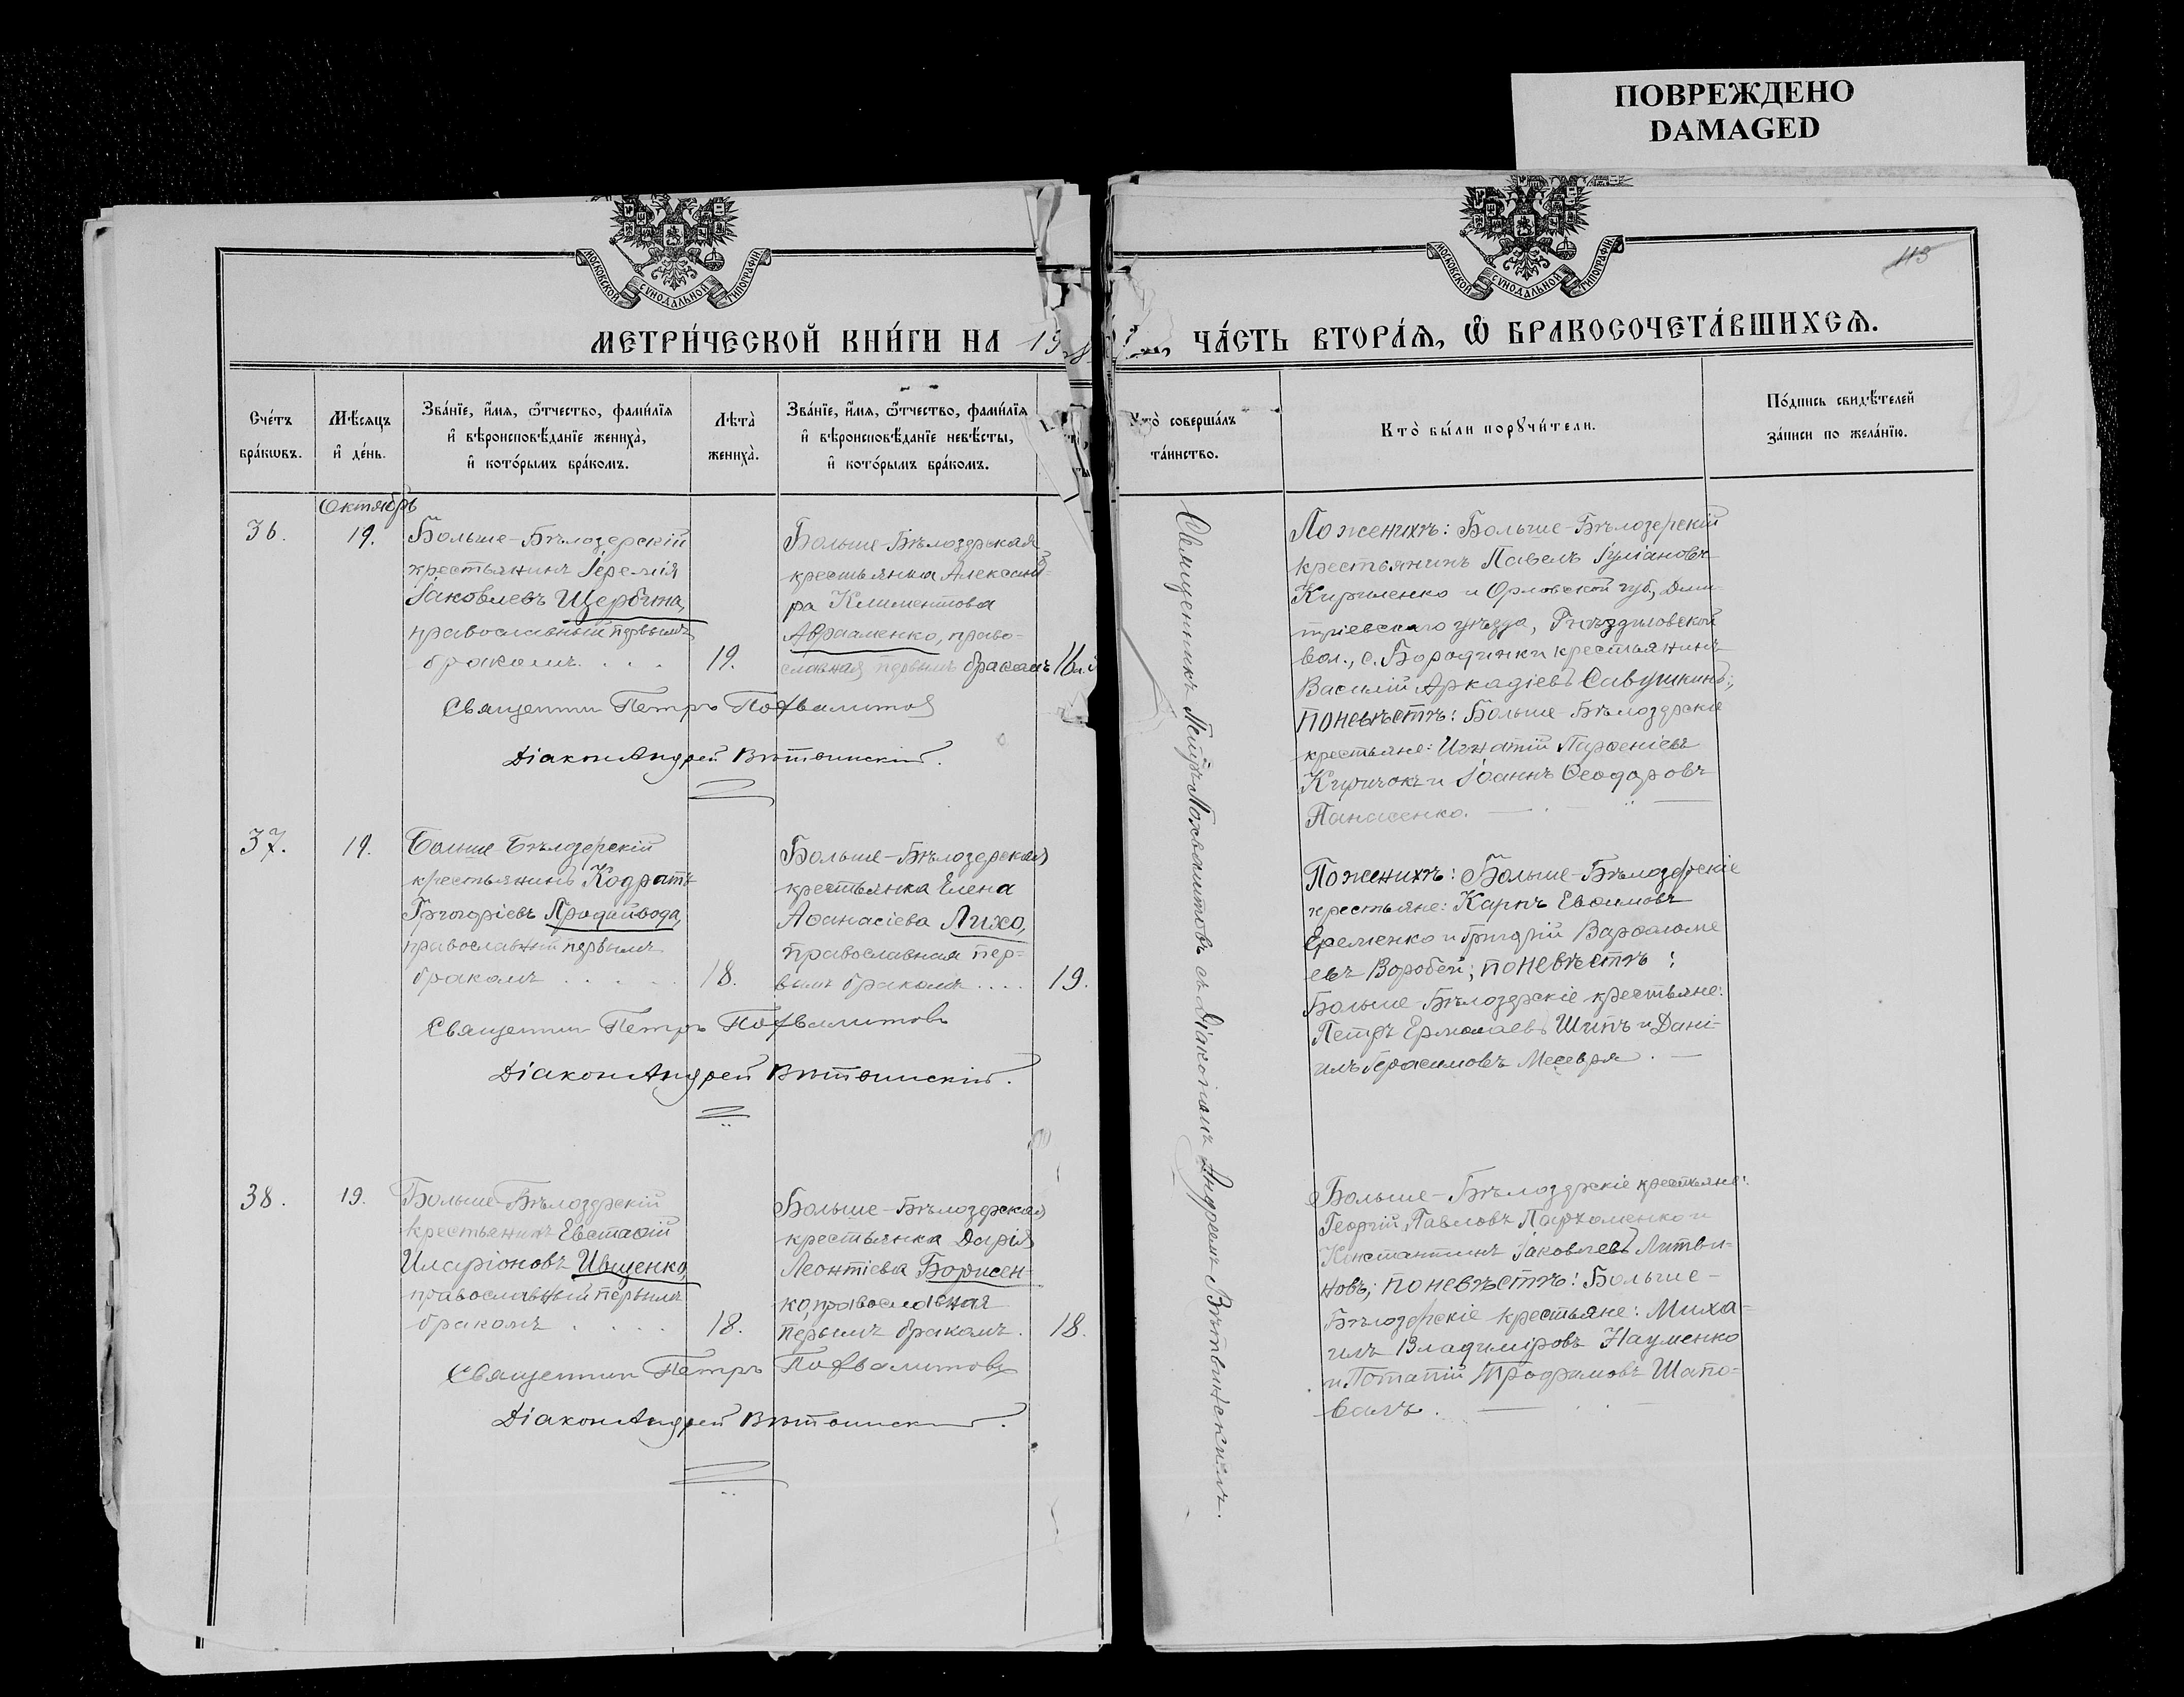 ПОВРЕЖДЕНО
DAMAGED
МОСКОВСКОЙ СѴНОДАЛЬНОЙ ТИПОГРАФІИ
МОСКОВСКОЙ СѴНОДАЛЬНОЙ ТИПОГРАФІИ
113
МЕТРИ́ЧЕСКОЙ КНИ́ГИ НА
ЧА́СТЬ ВТОРА́Я, Ѿ БРАКОСОЧЕТА́ВШИХСЯ.
Сче́тъ
бра́ковъ.
Мѣ́сяцъ
и҆ де́нь.
Зва́нїе, и҆́мя, ѻ҆́тчество, фами́лїя
и҆ вѣроисповѣ́данїе жениха̀,
и҆ кото́рымъ бра́комъ.
Лѣта̀
жениха̀.
Зва́нїе, и҆́мя, ѻ҆́тчество, фами́лїя
и҆ вѣроисповѣ́данїе невѣ́сты,
и҆ кото́рымъ бра́комъ.
Кто̀ соверша́лъ
та́инство.
Кто̀ бы́ли порꙋчи́тели.
По́дпись свидѣ́телей
за́писи по жела́нїю.
Октябрь
36.
19.
Больше-Бѣлозерскій
крестьянинъ Іеремія
Іаковлевъ Щербина,
православный первымъ
бракомъ. . . .
19.
Больше-Бѣлозерская
крестьянка Александ-
ра Климентова
Авраменко, право-
славная первымъ бракомъ
16
Священник Петръ Похвалитов
Діаконъ Андрей Вѣтвинскій.
По женихѣ: Больше-Бѣлозерскій
крестьянинъ Павелъ Іуліановъ
Кириленко и Орловской губ., Дми-
тріевскаго уѣзда, Гнѣздиловской
вол., с. Бородинки крестьянинъ
Василій Аркадіевъ Савушкинъ;
по невѣстѣ: Больше-Бѣлозерскіе
крестьяне: Игнатій Парѳеніевъ
Киричокъ и Іоаннъ Ѳеодоровъ
Панасенко.
37.
19.
Больше-Бѣлозерскій
крестьянинъ Кодратъ
Григоріевъ Продайвода,
православный первымъ
бракомъ . . . . .
18.
Больше-Бѣлозерская
крестьянка Елена
Аѳанасіева Лихо,
православная пер-
вымъ бракомъ . . . .
19.
Священник Петръ Похвалитовъ
Діаконъ Андрей Вѣтвинскій.
По женихѣ: Больше-Бѣлозерскіе
крестьяне: Карпъ Евѳимовъ
Еременко и Григорій Варѳоломе
евъ Воробей; по невѣстѣ:
Больше-Бѣлозерскіе крестьяне:
Петръ Ермолаевъ Шипъ и Дані-
илъ Герасимовъ Месевря.
38.
19.
Больше-Бѣлозерскій
крестьянинъ Евстаѳій
Иларіоновъ Иващенко,
православный первымъ
бракомъ . . . .
18.
Больше-Бѣлозерская
крестьянка Дарія
Леонтіева Борисен-
ко, православная
первымъ бракомъ.
18.
Священник Петръ Похвалитовъ
Діаконъ Андрей Вѣтвинскій.
Больше-Бѣлозерскіе крестьяне:
Георгій Павловъ Пархоменко и
Константинъ Іаковлевъ Литви-
новъ; по невѣстѣ: Больше-
Бѣлозерскіе крестьяне: Миха-
илъ Владиміровъ Науменко
и Потапій Трофимовъ Шапо-
валъ.
Священникъ Петръ Похвалитовъ съ Діакономъ Андреемъ Вѣтвинскимъ.